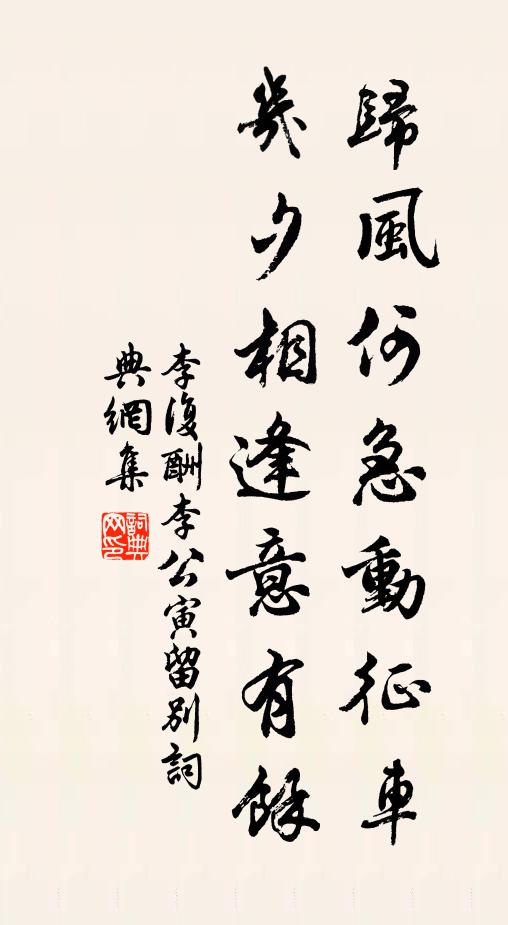 歸風何急動征車
幾夕相逢意有餘
李復酬李公寅留別詞
典網集
詞典網印